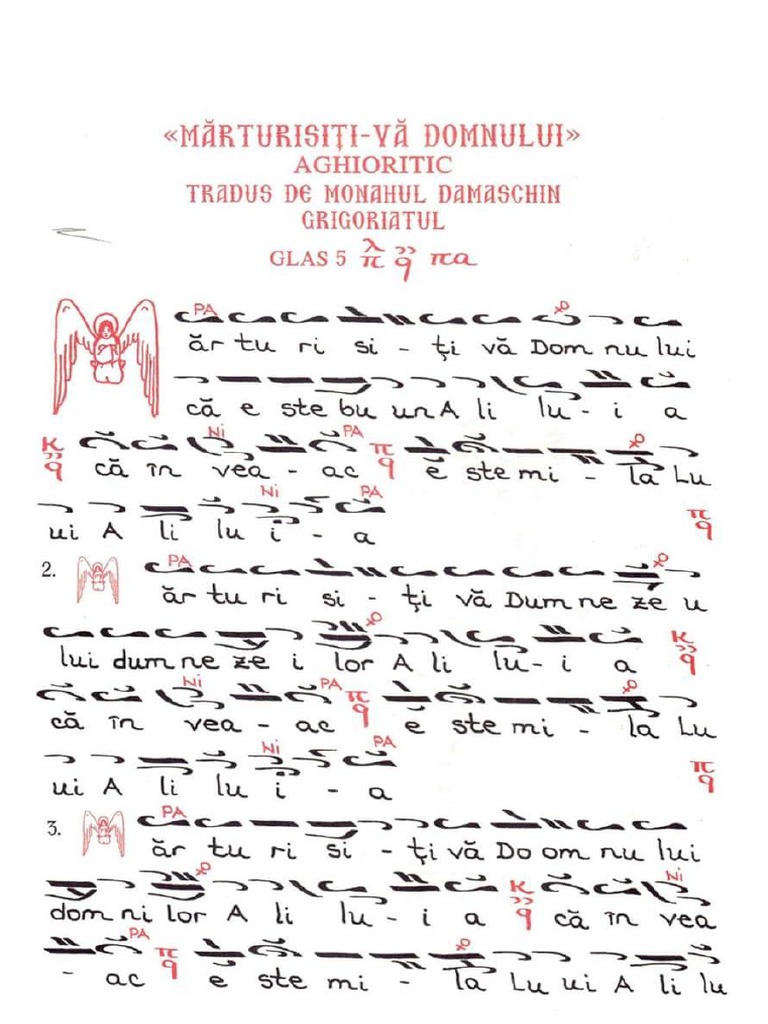 «MĂRTURISIȚI-VĂ DOMNULUI»
AGHIORITIC
TRADUS DE MONAHUL DAMASCHIN
GRIGORIATUL
GLAS 5 πα
PA
ăr tu ri si - ți vă Dom nu lui
că e ste bu un A li lu - i a
Ni PA
că în vea - ac ĕ ste mi - la Lu
Ni PA
ui A li lu i - a
2. PA
ăr tu ri si - ți vă Dum ne ze u
lui dum ne ze i lor A li lu - i a
Ni PA
că în vea - ac ĕ ste mi - la Lu
Ni PA
ui A li lu i - a
3. PA
ăr tu ri si - ți vă Do om nu lui
Ni
dom ni lor A li lu - i a că în vea
PA
- ac ĕ ste mi - la Lu ui A li lu